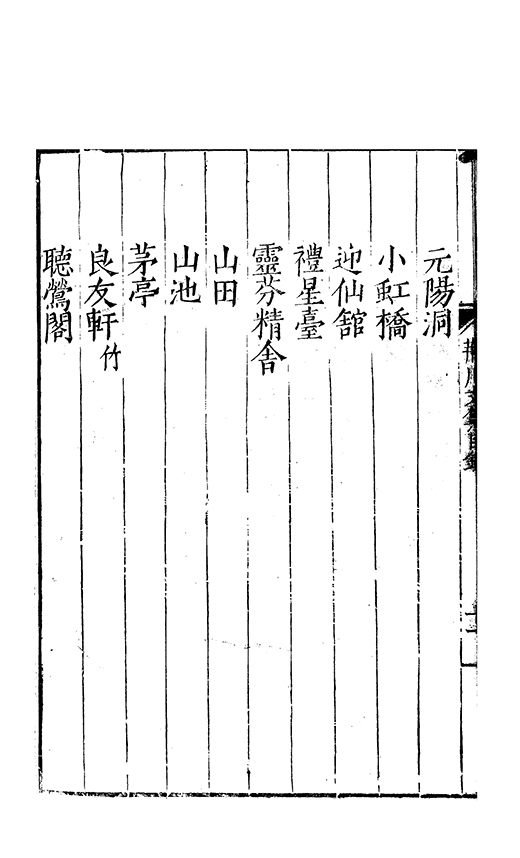 元陽洞
小虹橋
迎仙舘
禮星臺
靈芬精舍
山田
山池
茅亭
良友軒 竹
聽鶯閣